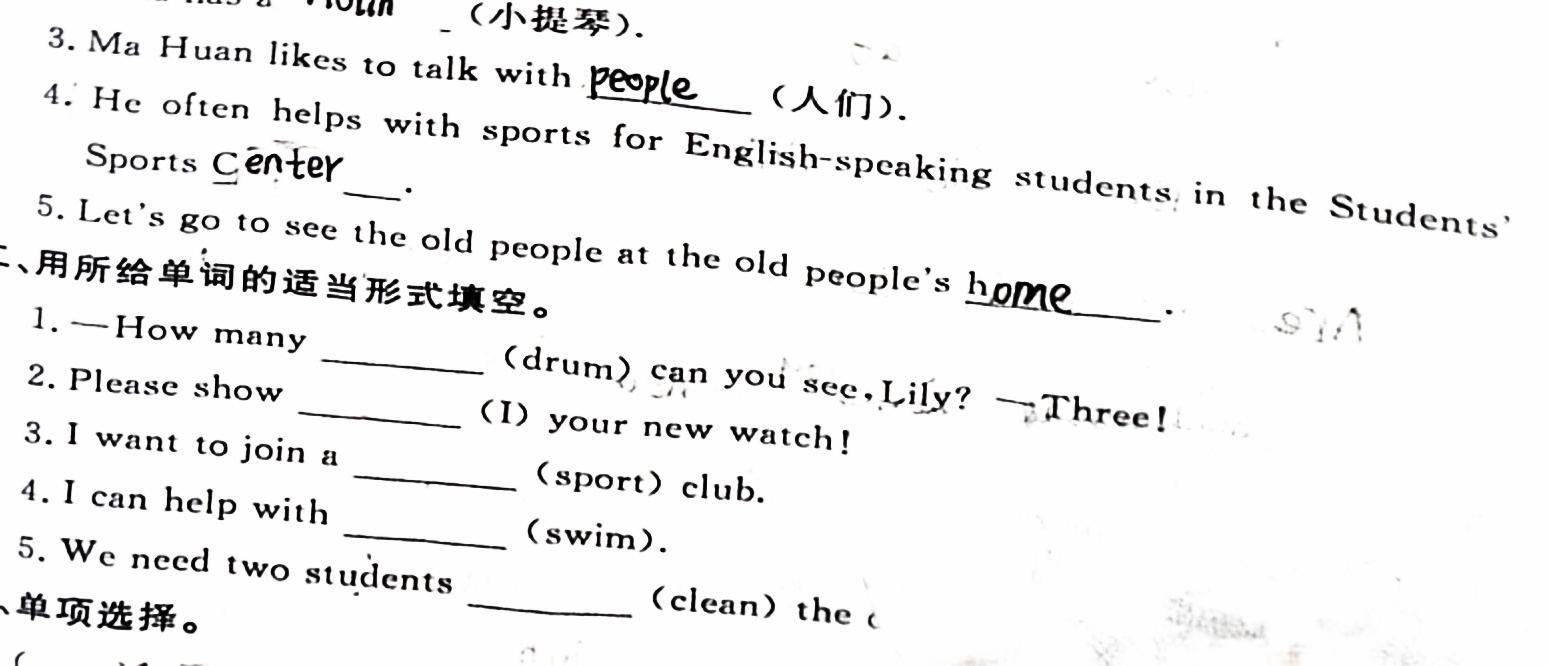 a violin （小提琴）.
3. Ma Huan likes to talk with people （人们）.
4. He often helps with sports for English-speaking students in the Students'
Sports Center ___.
5. Let's go to see the old people at the old people's home ___.
二、用所给单词的适当形式填空。
1. —How many ________ （drum） can you see, Lily? —Three!
2. Please show ________ （I） your new watch!
3. I want to join a ________ （sport） club.
4. I can help with ________ （swim）.
5. We need two students ________ （clean） the
、单项选择。